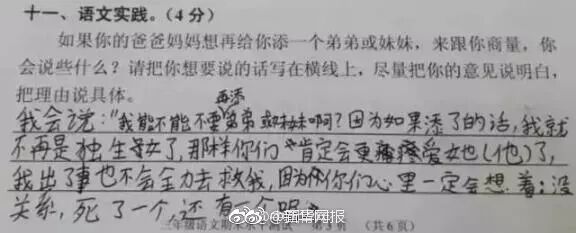 十一、语文实践。(4分)
如果你的爸爸妈妈想再给你添一个弟弟或妹妹，来跟你商量，你
会说些什么？请把你想要说的话写在横线上，尽量把你的意见说明白，
把理由说具体。
再添
我会说："我能不能不要弟弟或妹妹啊？因为如果添了的话，我就
不再是独生女了，那样你们肯定会更疼爱她(他)了，
我出了事也不会全力去救我，因为你们心里一定会想着：没
关系，死了一个，还有一个呢。
@新华网报
三年级语文期末水平测试 第5页 (共6页)